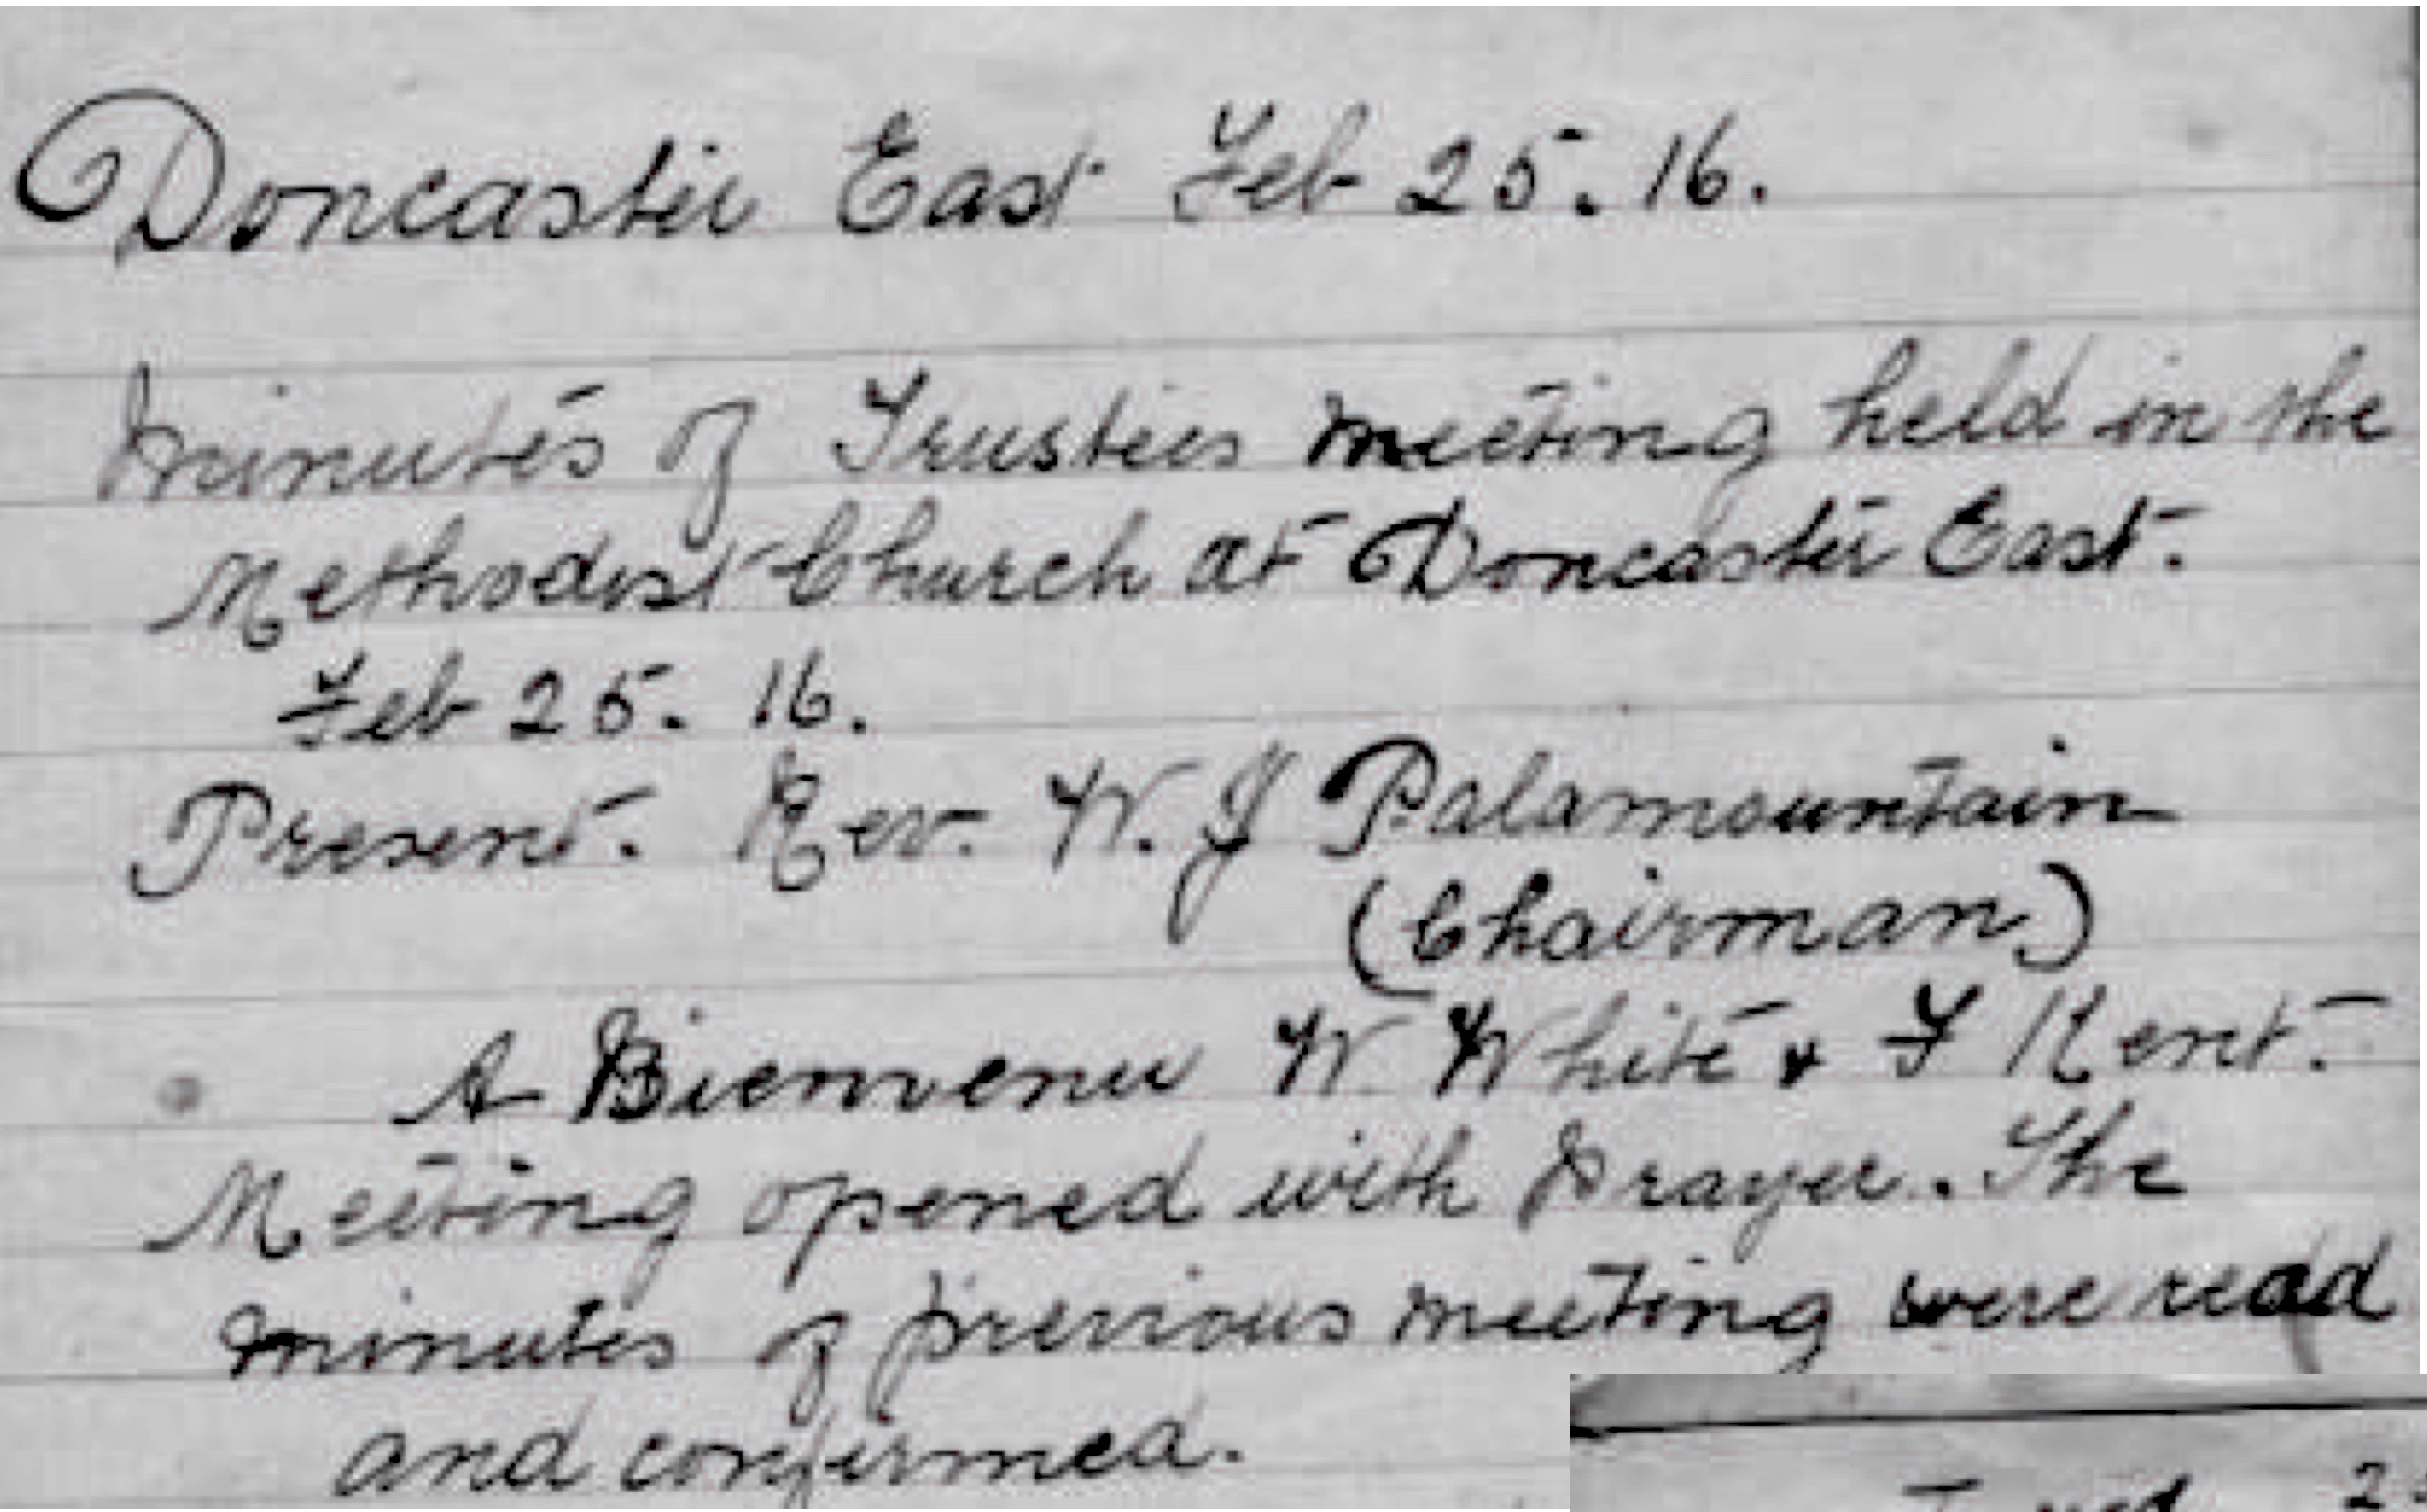 Doncaster East Feb 25. 16.
Minutes of Trustees meeting held in the
Methodist Church at Doncaster East.
Feb 25. 16.
Present. Rev. W. J Palamountain
(Chairman)
A Bienvenu W. White & F Kent.
Meeting opened with Prayer. The
minutes of previous meeting were read
and confirmed.